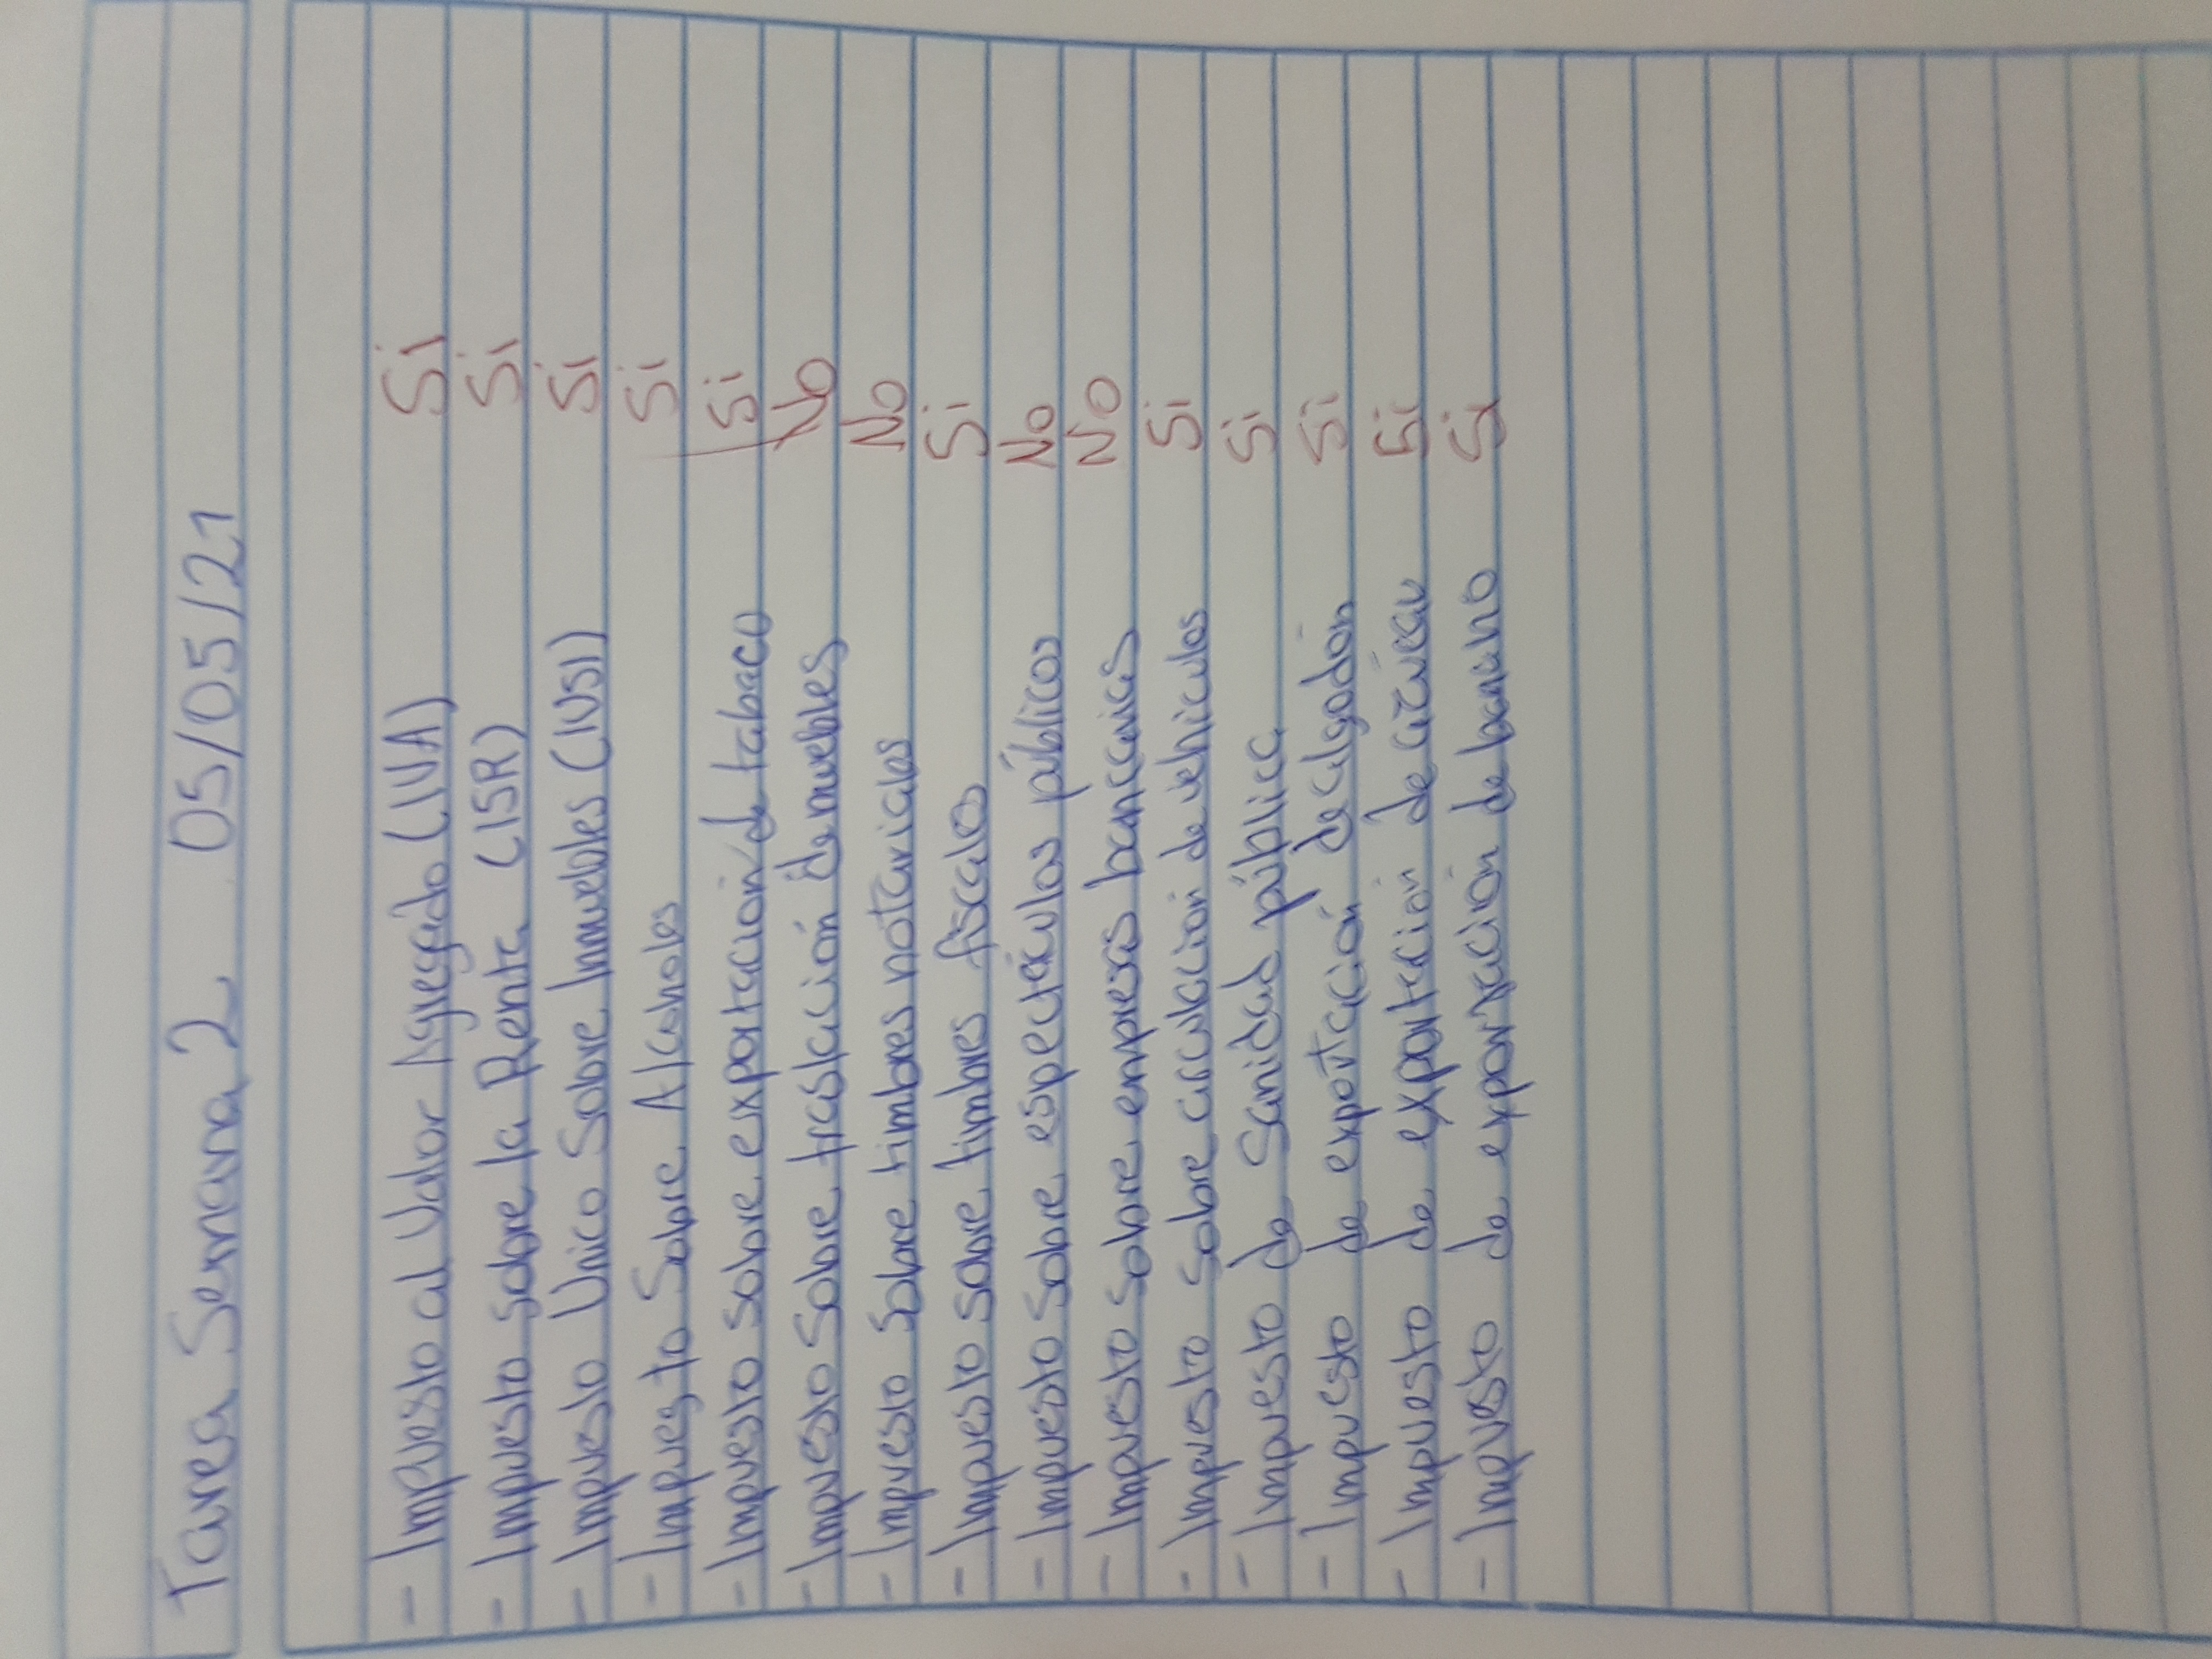 Tarea Semana 2 05/05/21
- Impuesto al Valor Agregado (IVA) Si
- Impuesto sobre la Renta (ISR) Si
- Impuesto Unico Sobre Inmuebles (IUSI) Si
- Impuesto Sobre Alcoholes Si
- Impuesto sobre exportación de tabaco Si
- Impuesto Sobre traslación de muebles No
- Impuesto Sobre timbres notariales No
- Impuesto sobre timbres fiscales Si
- Impuesto Sobre espectáculos públicos No
- Impuesto Sobre empresas bancarias No
- Impuesto Sobre circulacion de vehiculos Si
- Impuesto de Sanidad pública Si
- Impuesto de expotación de algodón Si
- Impuesto de exportación de Si
- Impuesto de exportación de banano Si